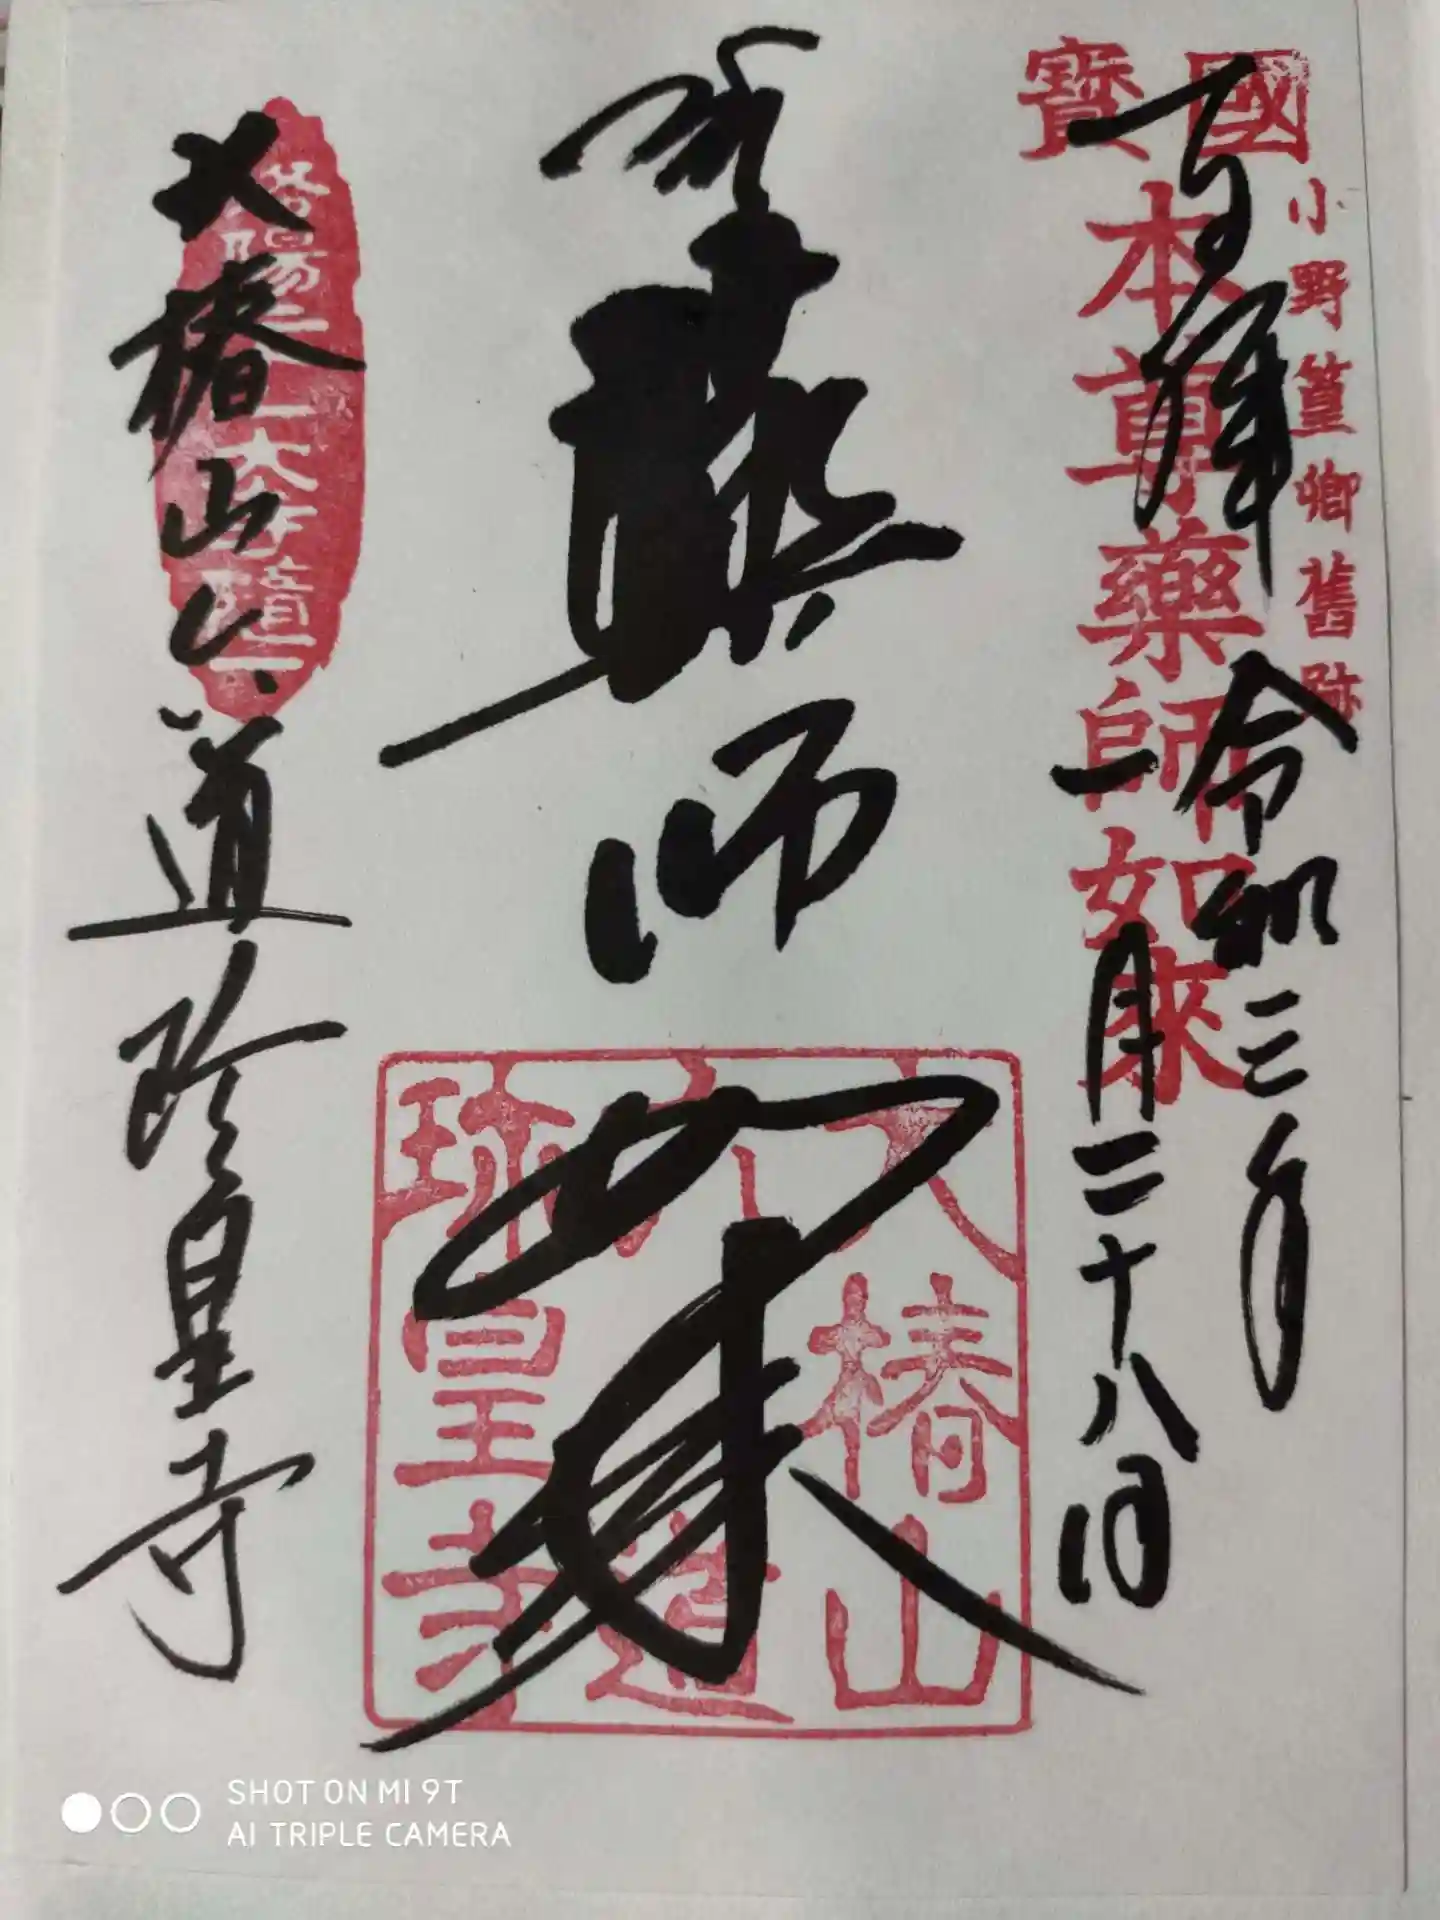 國寶
小野篁卿舊跡
本尊藥師如來
奉拜
令和三年
一月二十八日
藥師如来
大椿山
六道
珍皇寺
大椿山六道珍皇寺
SHOT ON MI 9T
AI TRIPLE CAMERA